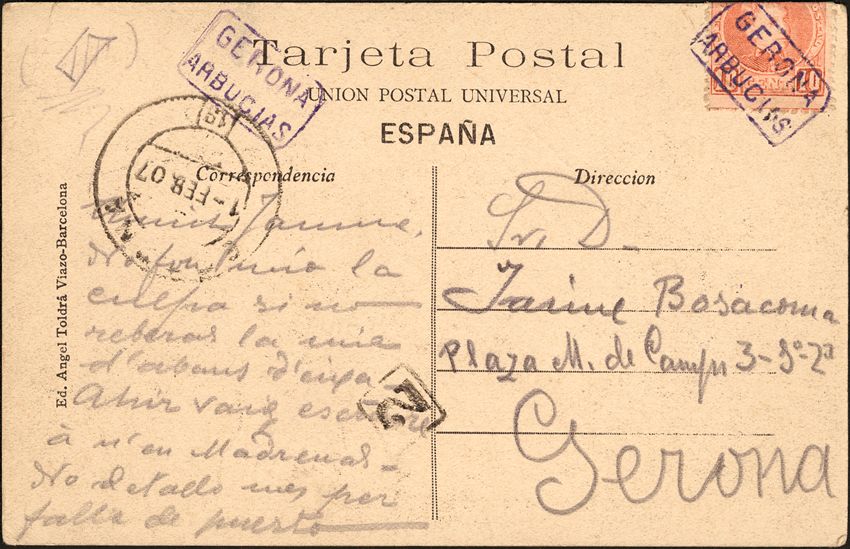 Tarjeta Postal
UNION POSTAL UNIVERSAL
ESPAÑA
GERONA
ARBUCIAS
GERONA
ARBUCIAS
Correspondencia
Direccion
1-FEB.07
Jaume,
No fou la
culpa si no
reberas la mia
d'abans d'
Ahir vaig escriure
á n'en Madrenas -
No detallo mes per
falta de puesto
2
Sr. D.
Jaime Bosacoma
Plaza M. de Camps 3-3º-2ª
Gerona
Ed. Angel Toldrá Viazo-Barcelona